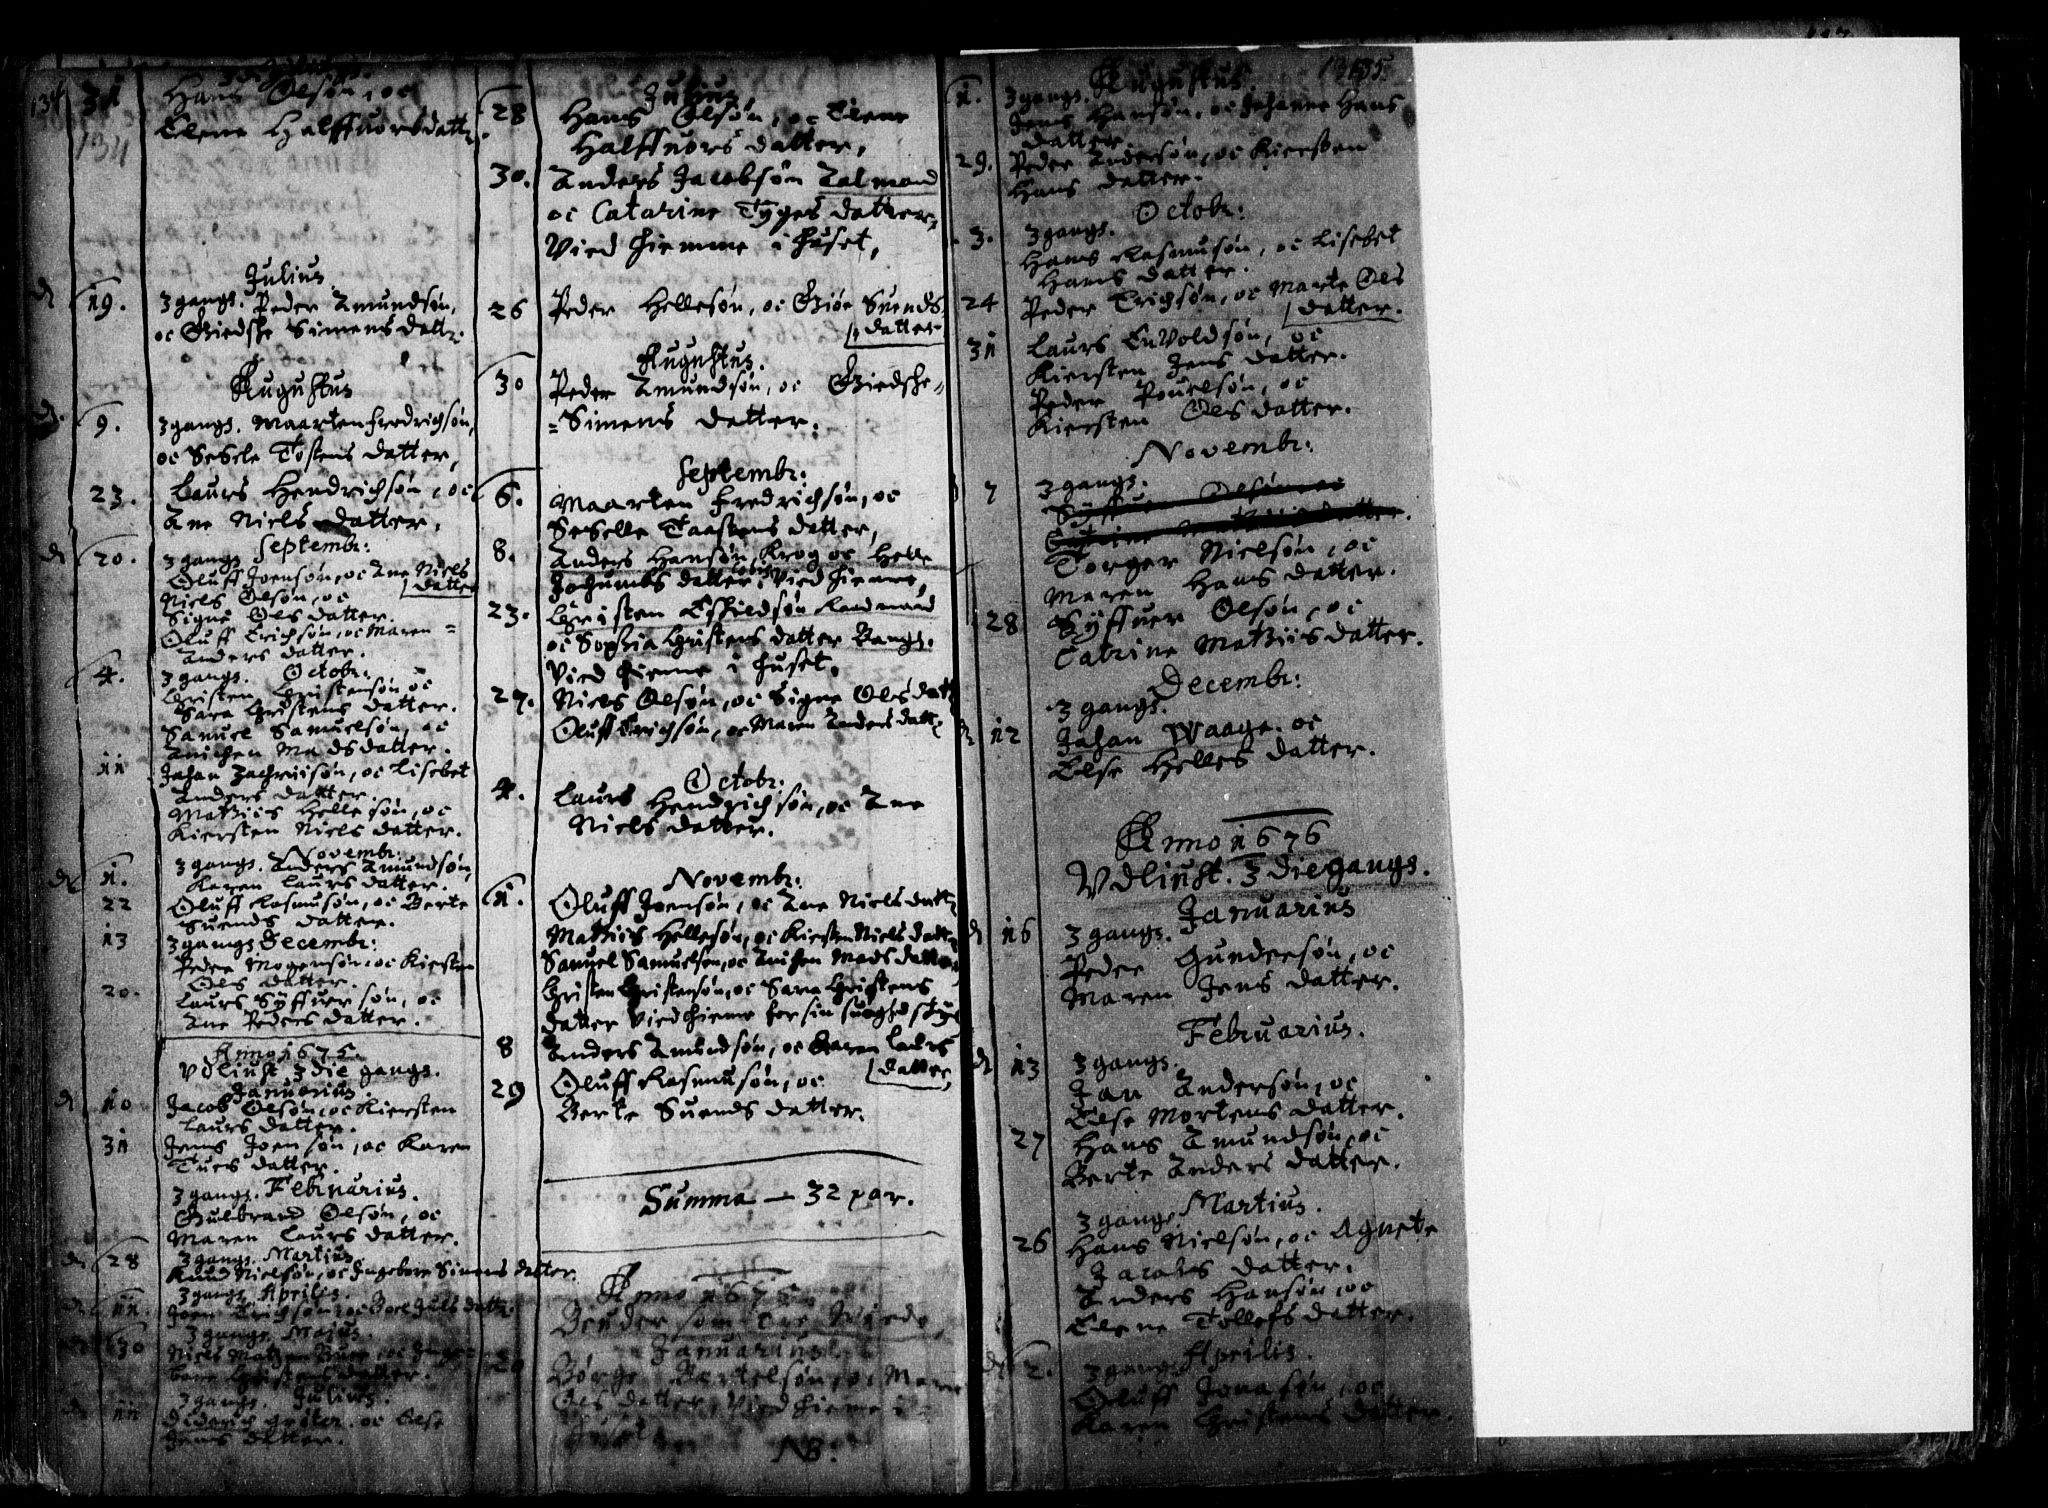 134
31 Hans Olsøn, oc
Elene Halffuorsdattr.
134
Julius
19. 3 gangs. Peder Amundsøn,
oc Giedske Simens dattr.
Augustus
9. 3 gangs. Maarten Fredrichsøn,
oc Sesele Tostens datter,
23. Laurs Hendrichsøn, oc
Ane Niels datter,
Septembr:
20. 3 gangs
Oluff Joensøn, oc Ane Niels
datter
Niels Olsøn, oc
Signe Ols datter.
Oluff Erichsøn, oc Maren =
Anders datter.
4. 3 gangs. Octobr:
Christen Christensøn oc
Sara Christens datter.
Samuel Samuelsøn, oc
Anichen Madsdatter.
11 Johan Zachriisøn, oc Lisebet
Anders datter.
Mathiis Hellesøn, oc
Kiersten Niels datter.
Novembr:
1. 3 gangs. Anders Amundsøn,
Karen Laurs datter.
22 Oluff Rasmusøn, oc Berte
Suends datter.
13 3 gangs Decembr:
Peder Mogensøn, oc Kiersten
Ols datter.
20. Laurs Syffuersøn, oc
Ane Peders datter.
Anno 1675.
Vdliust 3 die gangs.
Januarius.
10 Jacob Olsøn, oc Kiersten
Laurs datter.
31 Jens Joensøn, oc Karen
Tues datter.
3 gangs. Februarius.
Gulbrand Olsøn, oc
Maren Laurs datter.
28 3 gangs. Martius
Knud Nielsøn, oc Ingebore Simens datter.
3 gangs Aprilis.
11. Joen Erichsøn, oc Boel Juls dattr.
3 gangs. Majus.
30 Niels Matzøn Buur, oc Inge=
bore Christens datter.
3 gangs. Julius.
11 Diderich Gröter. oc Else
Jens datter.
Julius
28 Hans Olsøn, oc Elene
Halffuors datter,
30. Anders Jacobsøn Talmand
oc Catarine Tyges datter,
Vied hiemme i huset,
26 Peder Hellesøn, oc Giøe Suends
datter
Augustus.
30 Peder Amundsøn, oc Giedske=
=Simens datter.
Septembr:
6. Maarten Fredrichsøn, oc
Seselle Taastens datter,
8. Anders Hansøn Krog oc Helle
Jochumbs datter, Vied hieme,
23. Christen Eskildsøn Raadmand
oc Sophia Christens datter Bangs.
Vied hieme i huset.
27. Niels Olsøn, oc Signe Olsdattr
Oluff Erichsøn, oc Maren Anders dattr
Octobr:
4. Laurs Hendrichsøn, oc Ane
Niels datter.
Novembr:
1. Oluff Joensøn, oc Ane Niels dattr
Mathiis Hellesøn, oc Kiersten Niels dattr
Samuel Samuelsøn, oc Anichen Mads datter
Christen Christensøn, oc Sara Christens
datter Vied hieme for sin
8 Anders Amundsøn, oc Karen Laurs
datter,
29 Oluff Rasmusøn, oc
Berte Suends datter.
Summa — 32 par.
Anno 1675.
Bender som ere Viede,
Januarius.
20 Børge Bertelsøn, oc Maren
Ols datter, Vied hieme i
huset
NB.
135
Augustus
1. 3 gangs.
Jens Hansøn, oc Johanne Hans
datter
29. Peder Andersøn, oc Kiersten
Hans datter.
Octobr:
3. 3 gangs.
Hans Rasmusøn, oc Lisebet
Hans datter.
24 Peder Erichsøn, oc Marte Ols
datter.
31 Laurs Envoldsøn, oc
Kiersten Jens datter.
Peder Pouelsøn, oc
Kiersten Ols datter.
Novembr:
7 3 gangs.
Syffuer Olsøn, oc
Catrine Mathiis datter.
Torger Nielsøn, oc
Maren Hans datter.
28 Syffuer Olsøn, oc
Catrine Mathiis datter.
Decembr:
3 gangs.
12 Johan Waage. oc
Else Helles datter.
Anno 1676
Vdliust. 3 die gangs.
Januarius
16 3 gangs.
Peder Gundersøn, oc
Maren Jens datter.
Februarius.
13 3 gangs.
Jan Andersøn, oc
Else Mortens datter.
27 Hans Amundsøn, oc
Berte Anders datter.
3 gangs Martius.
26 Hans Nielsøn, oc Agnete
Jacobs datter.
Anders Hansøn, oc
Elene Tollefs datter.
Aprilis.
2. 3 gangs
Oluff Jonasøn, oc
Karen Christens datter.